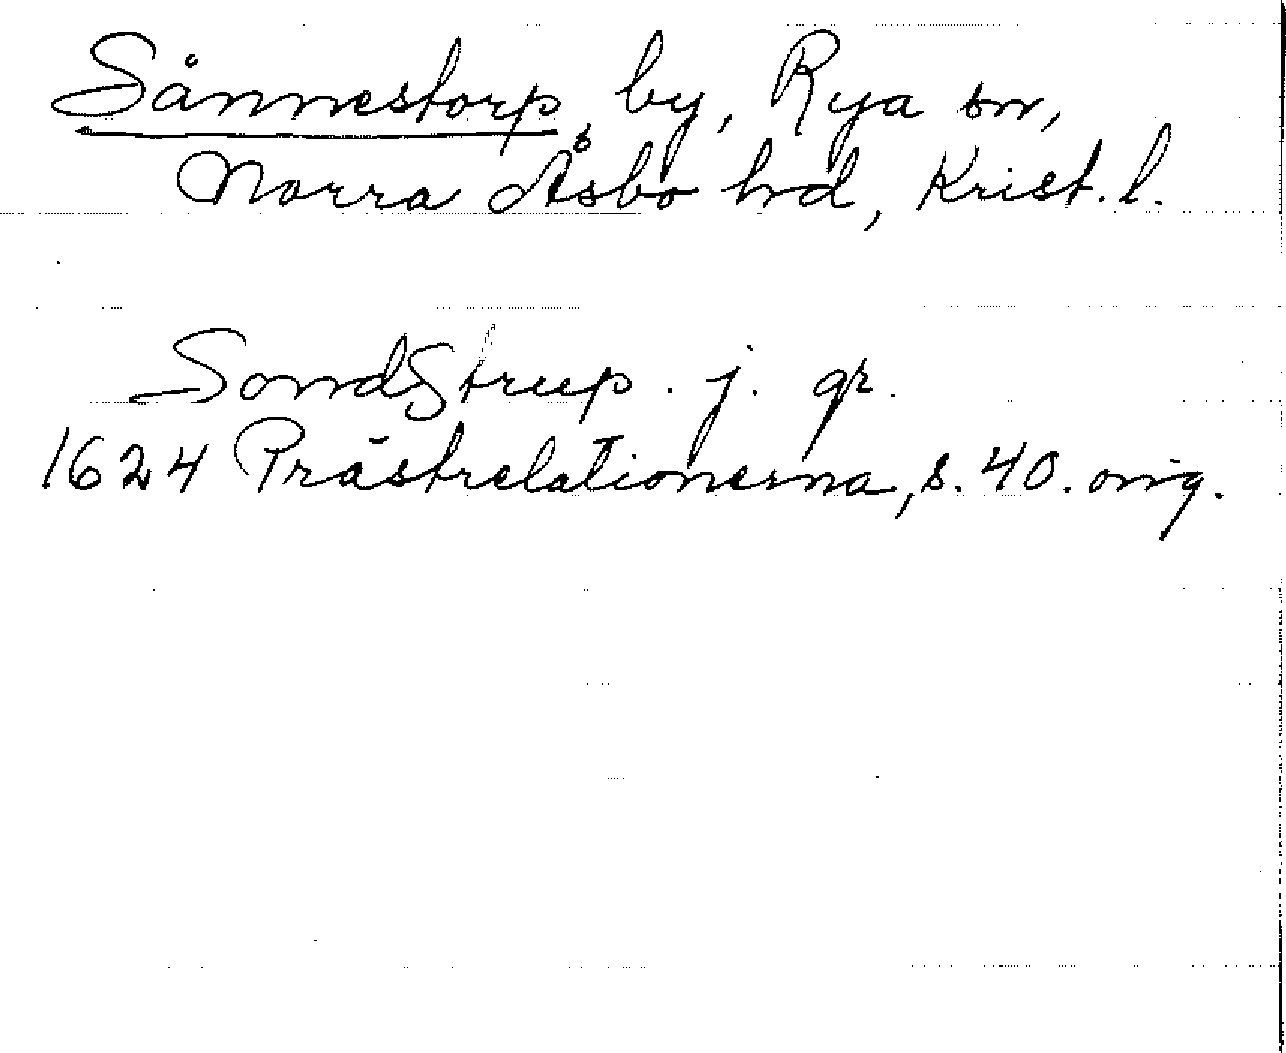 Sånnestorp, by, Rya sn,
Norra Åsbo hrd, Krist. l.
Sondstrup . j. gr.
1624 Prästrelationerna, s. 40. orig.